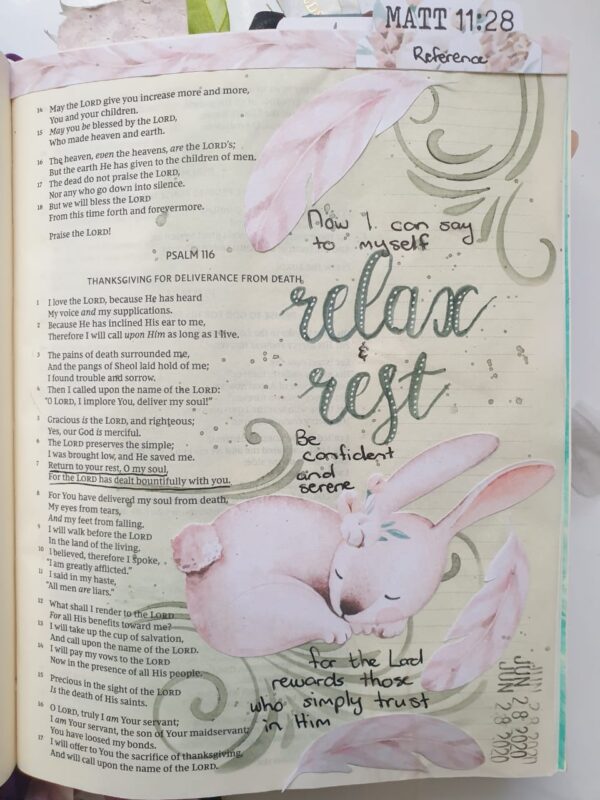 MATT 11:28
Reference
14 May the LORD give you increase more and more,
You and your children.
15 May you be blessed by the LORD,
Who made heaven and earth.
16 The heaven, even the heavens, are the LORD's;
But the earth He has given to the children of men.
17 The dead do not praise the LORD,
Nor any who go down into silence.
18 But we will bless the LORD
From this time forth and forevermore.
Praise the LORD!
PSALM 116
THANKSGIVING FOR DELIVERANCE FROM DEATH
1 I love the LORD, because He has heard
My voice and my supplications.
2 Because He has inclined His ear to me,
Therefore I will call upon Him as long as I live.
3 The pains of death surrounded me,
And the pangs of Sheol laid hold of me;
I found trouble and sorrow.
4 Then I called upon the name of the LORD:
"O LORD, I implore You, deliver my soul!"
5 Gracious is the LORD, and righteous;
Yes, our God is merciful.
6 The LORD preserves the simple;
I was brought low, and He saved me.
7 Return to your rest, O my soul,
For the LORD has dealt bountifully with you.
8 For You have delivered my soul from death,
My eyes from tears,
And my feet from falling.
9 I will walk before the LORD
In the land of the living.
10 I believed, therefore I spoke,
"I am greatly afflicted."
11 I said in my haste,
"All men are liars."
12 What shall I render to the LORD
For all His benefits toward me?
13 I will take up the cup of salvation,
And call upon the name of the LORD.
14 I will pay my vows to the LORD
Now in the presence of all His people.
15 Precious in the sight of the LORD
Is the death of His saints.
16 O LORD, truly I am Your servant;
I am Your servant, the son of Your maidservant;
You have loosed my bonds.
17 I will offer to You the sacrifice of thanksgiving,
And will call upon the name of the LORD.
Now I can say
to myself
relax
&
rest
Be
confident
and
serene
for the Lord
rewards those
who simply trust
in Him
JUN 28 2020
JUN 28 2020
JUN 28 2020